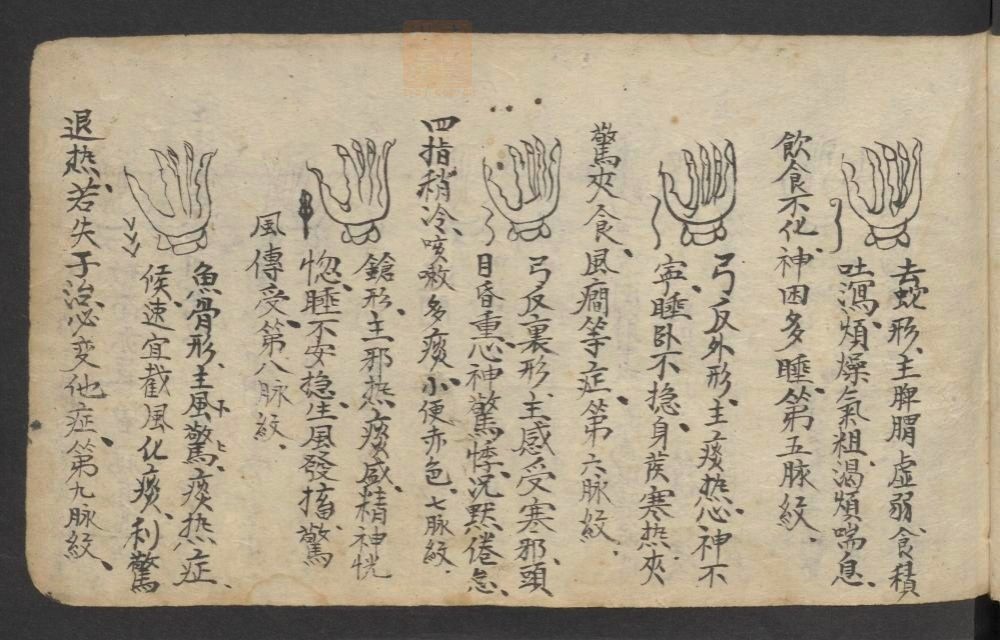 去蛇形、主脾胃虛弱、食積
吐瀉、煩燥、氣粗、渴煩、喘息、
飲食不化、神困多睡、第五脉紋、
弓反外形、主痰热、心神不
寜、睡卧不穏、身荗寒热、夾
驚夾食、風癎等症、第六脉紋、
弓反裏形、主感受寒邪、頭
目昏重、心神驚悸、沉默倦怠、
四指稍冷、咳嗽多痰、小便赤色、七脉紋、
鎗形、主邪热、痰盛、精神恍
惚、睡不安穏、生風發搐、驚
風傳受、第八脉紋、
魚骨形、主風驚、痰热症、
候、速宜截風化痰、利驚
退热、若失于治、必变他症、第九脉紋、